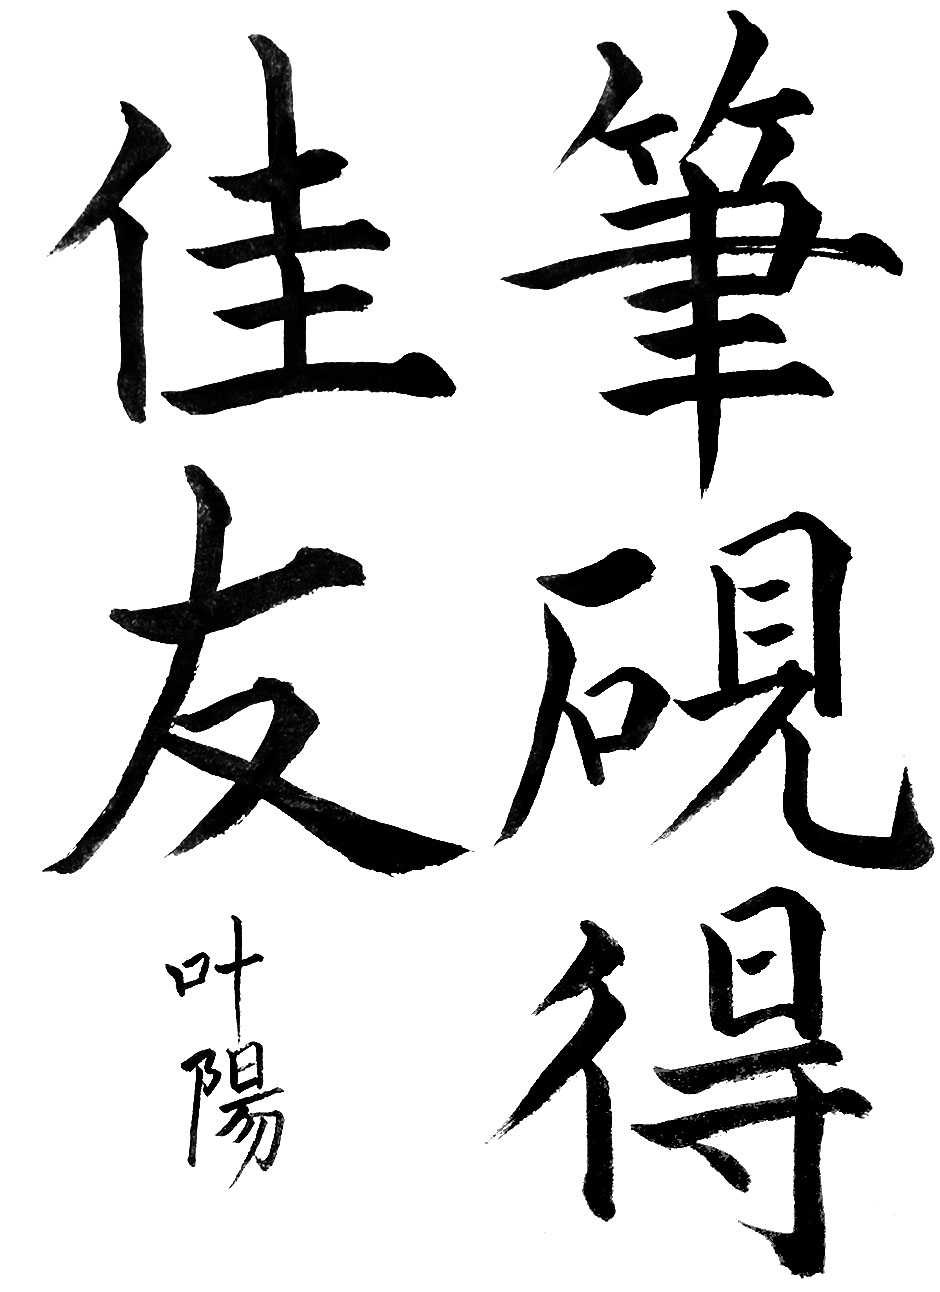 筆硯得
佳友
叶陽